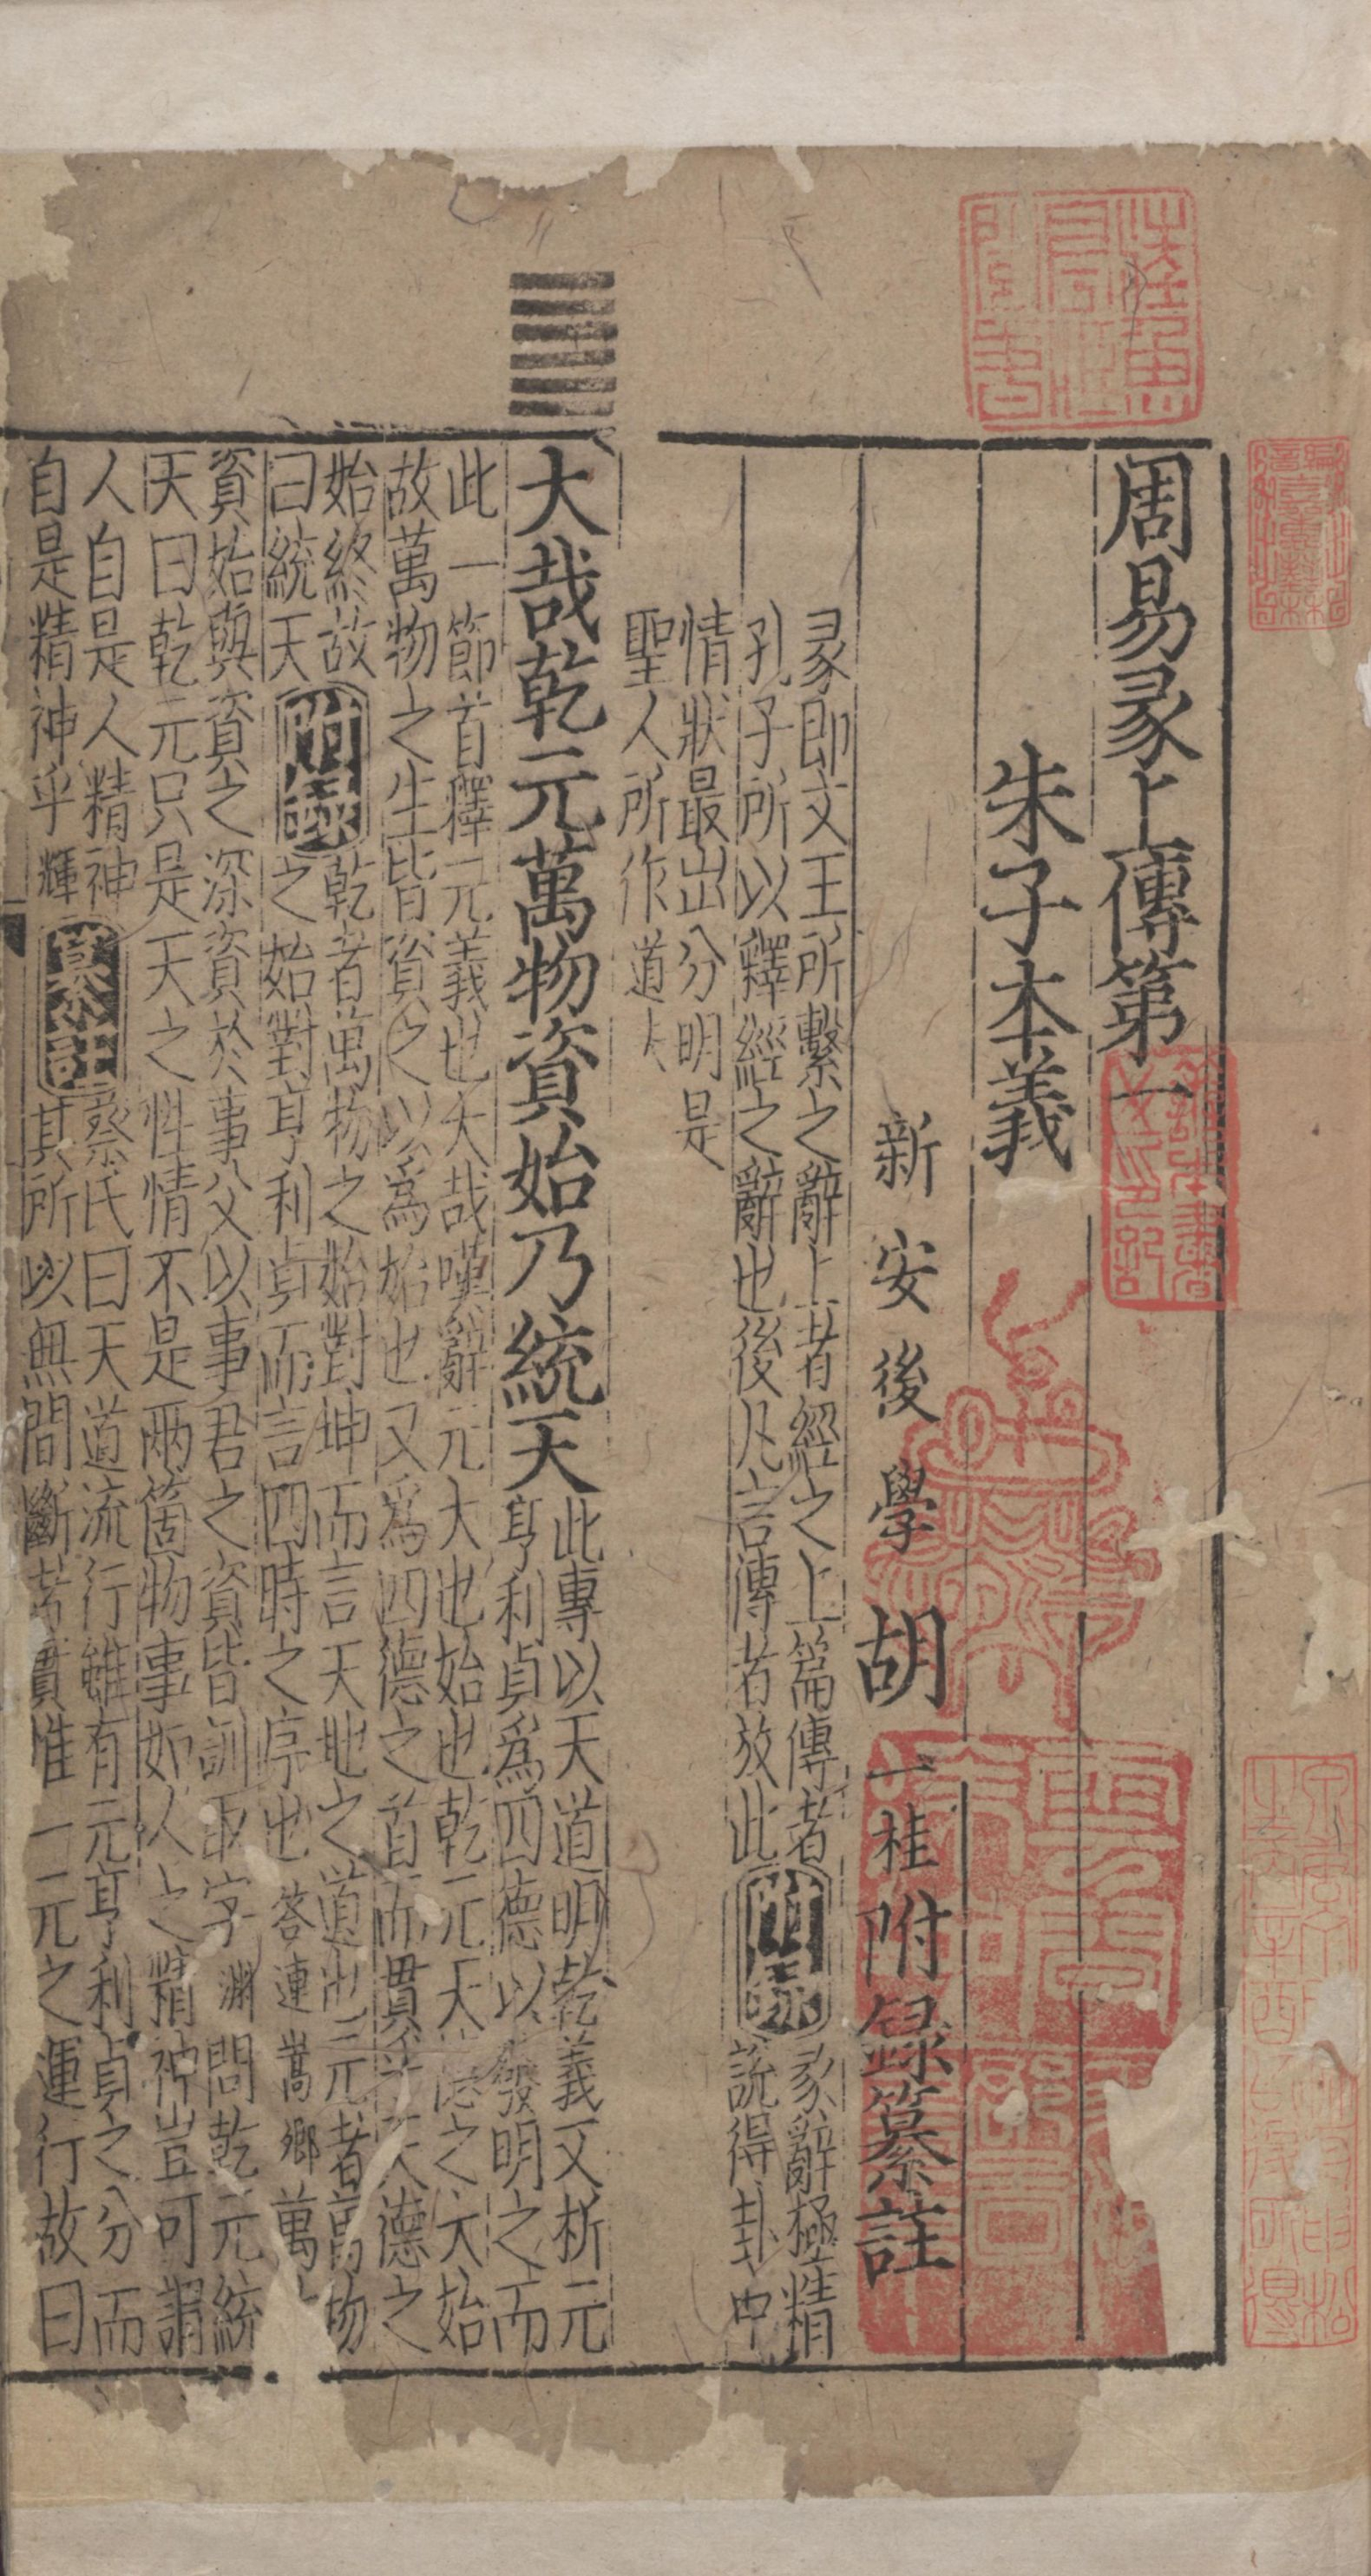 周易彖上傳第一
朱子本義
新安後學胡一桂附録纂註
彖即文王所繫之辭上者經之上篇傳者
孔子所以釋經之辭也後凡言傳者放此
附録
彖辭極精
說得卦中
情狀最出分明是
聖人所作道
大哉乾元萬物資始乃統天
此專以天道明乾義又析元
亨利貞爲四德以發明之而
此一節首釋元義也大哉嘆辭元大也始也乾元天德之大始
故萬物之生皆資之以爲始也又爲四德之首而貫乎天德之
始終故
曰統天
附録
乾者萬物之始對坤而言天地之道也元者萬物
之始對亨利貞而言四時之序也答連嵩卿萬
資始與資之深資於事父以事君之資皆訓取字淵問乾元統
天曰乾元只是天之性情不是兩箇物事如人之精神豈可謂
人自是人精神
自是精神乎輝
纂註
蔡氏曰天道流行雖有元亨利貞之分而
其所以無間斷者實惟一元之運行故曰